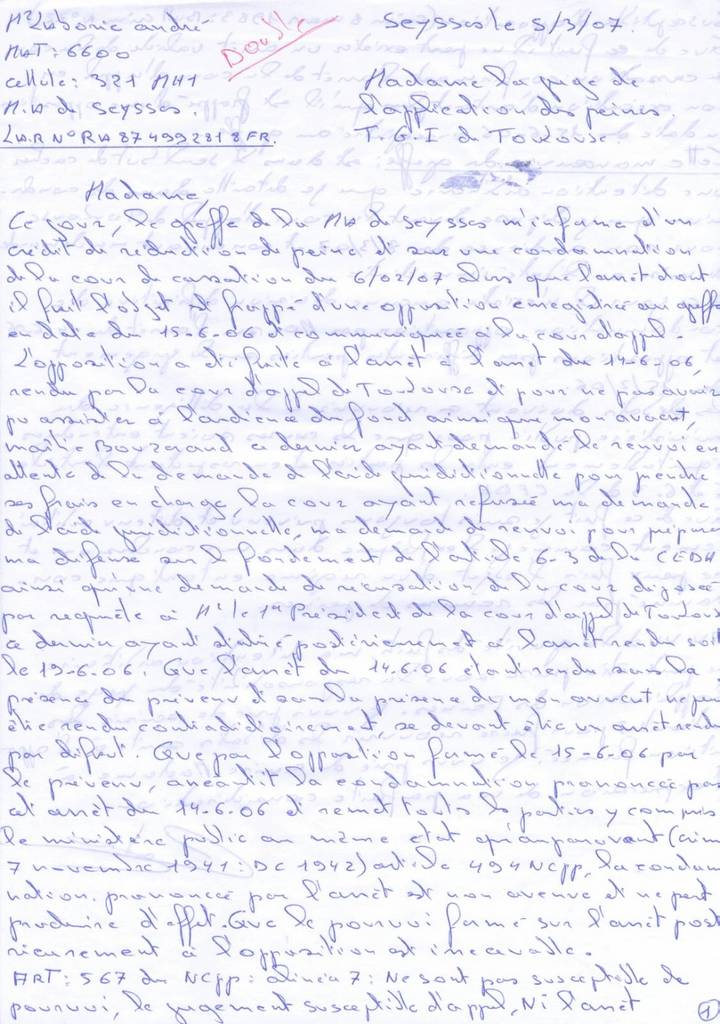 Mr Laborie andré Seysses le 5/3/07.
Double
MAT: 6600
cellule: 321 MH1 Madame la juge de
M.A de Seysses. l'application des peines.
L.A.R N° RA 87499 2818 FR. T.G.I de Toulouse.
Madame,
Ce jour, le greffe de la MA de Seysses m'informe d'un
crédit de réduction de peine et sur une condamnation
de la cour de cassation du 6/02/07 alors que l'arrêt dont
il fait l'objet est frappé d'une opposition enregistrée au greffe
en date du 15-6-06 et communiquée à la cour d'appel.
L'opposition a été faite à l'arrêt à l'arrêt du 14-6-06,
rendu par la cour d'appel de Toulouse et pour ne pas avoir
pu assister à l'audience du fond ainsi que mon avocat,
maître Bouzerand ce dernier ayant demandé le renvoi en
attente de la demande d'aide juridictionnelle pour prendre
ses frais en charge, la cour ayant refusée ma demande
de l'aide juridictionnelle, ma demande de renvoi pour préparer
ma défense sur le fondement de l'article 6-3 de la CEDH
ainsi qu'une demande de récusation de la cour déposée
par requête à Mr le 1er Président de la cour d'appel de Toulouse
ce dernier ayant statué postérieurement à l'arrêt rendu soit
le 19-6-06. Que l'arrêt du 14.6.06 étant rendu sans la
présence du prévenu et sans la présence de mon avocat ne peut
être rendu contradictoirement, se devant être un arrêt rendu
par défaut. Que par l'opposition formée le 15-6-06 par
le prévenu, anéantit la condamnation prononcée par
cet arrêt du 14-6-06 et remet toute les parties y compris
le ministère public au même état qu'auparavant (crim
7 novembre 1941: DC 1942) article 494 NCPP, la condam
nation prononcée par l'arrêt est non avenue et ne peut
produire d'effet. Que le pourvoi formé sur l'arrêt post
rieurement à l'opposition est irrecevable.
ART: 567 du NCPP: alinéa 7: Ne sont pas susceptible de
pourvoi, le jugement susceptible d'appel, Ni l'arrêt
1